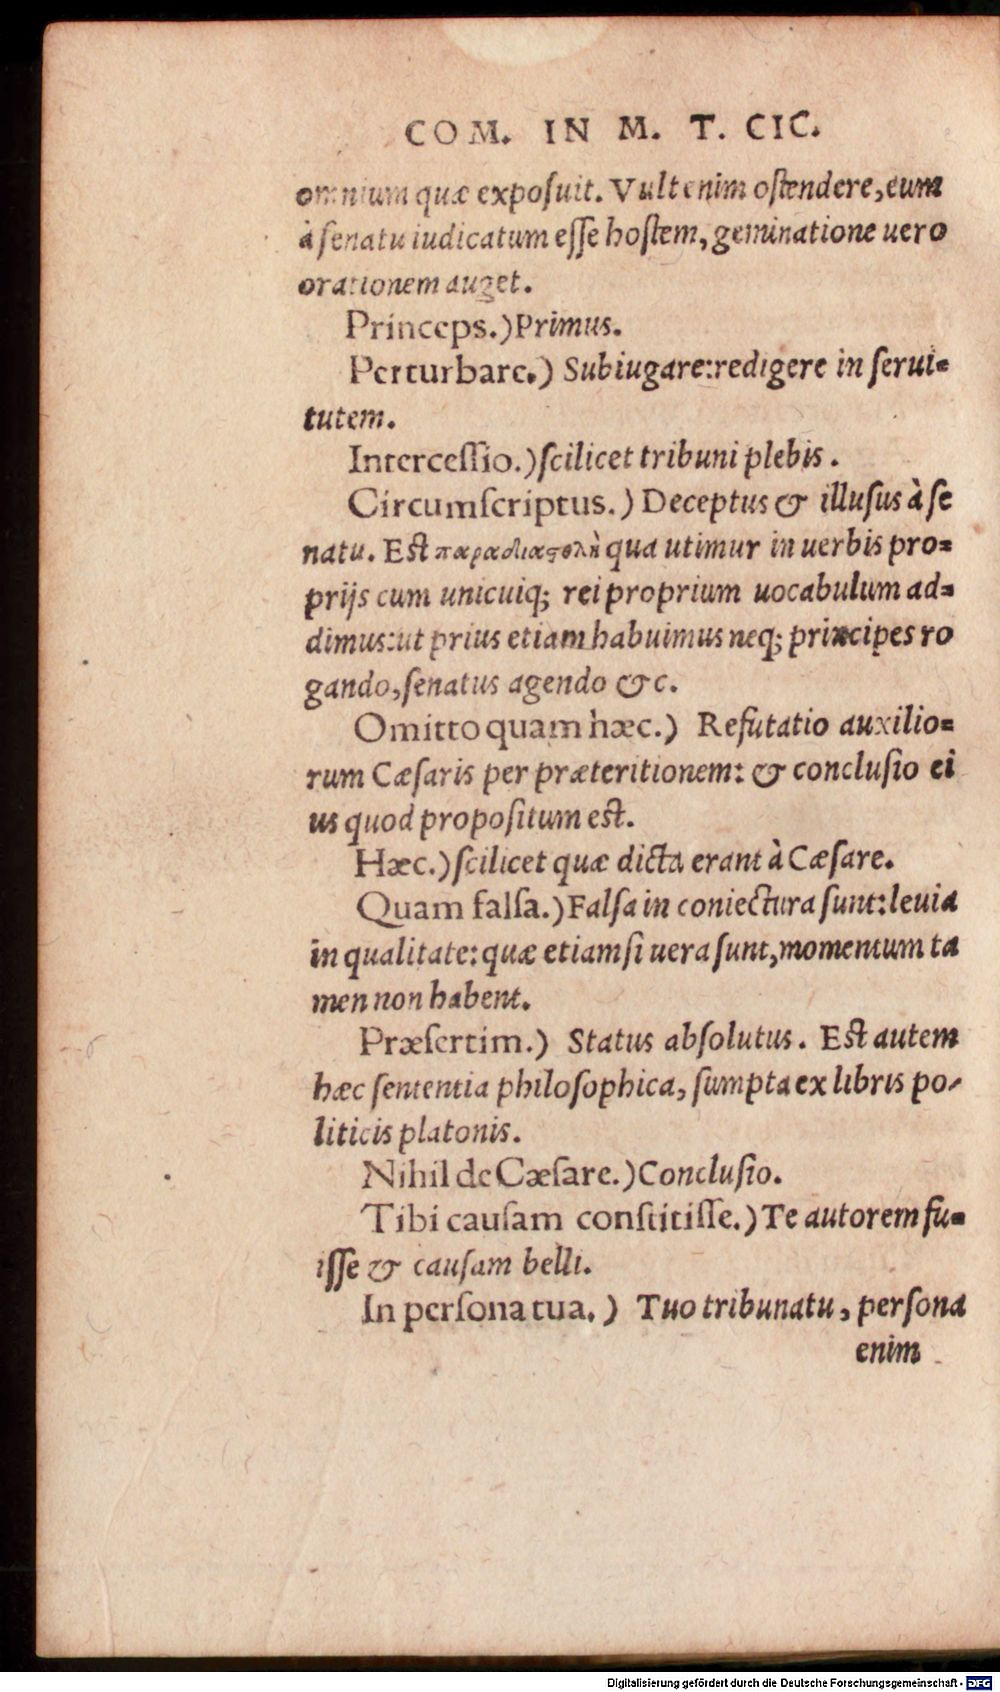 COM. IN M. T. CIC.
omnium quæ exposuit. Vult enim ostendere, eum
à senatu iudicatum esse hostem, geminatione uero
orationem auget.
Princeps.) Primus.
Perturbare.) Subiugare: redigere in serui=
tutem.
Intercessio.) scilicet tribuni plebis.
Circumscriptus.) Deceptus & illusus à se
natu. Est παραδιαστολὴ qua utimur in uerbis pro=
prijs cum unicuiq; rei proprium uocabulum ad=
dimus: ut prius etiam habuimus neq; principes ro
gando, senatus agendo &c.
Omitto quam hæc.) Refutatio auxilio=
rum Cæsaris per præteritionem: & conclusio ei
us quod propositum est.
Hæc.) scilicet quæ dicta erant à Cæsare.
Quam falsa.) Falsa in coniectura sunt: leuia
in qualitate: quæ etiamsi uera sunt, momentum ta
men non habent.
Præsertim.) Status absolutus. Est autem
hæc sententia philosophica, sumpta ex libris po-
liticis platonis.
Nihil de Cæsare.) Conclusio.
Tibi causam constitisse.) Te autorem fu=
isse & causam belli.
In persona tua.) Tuo tribunatu, persona
enim
Digitalisierung gefördert durch die Deutsche Forschungsgemeinschaft - DFG